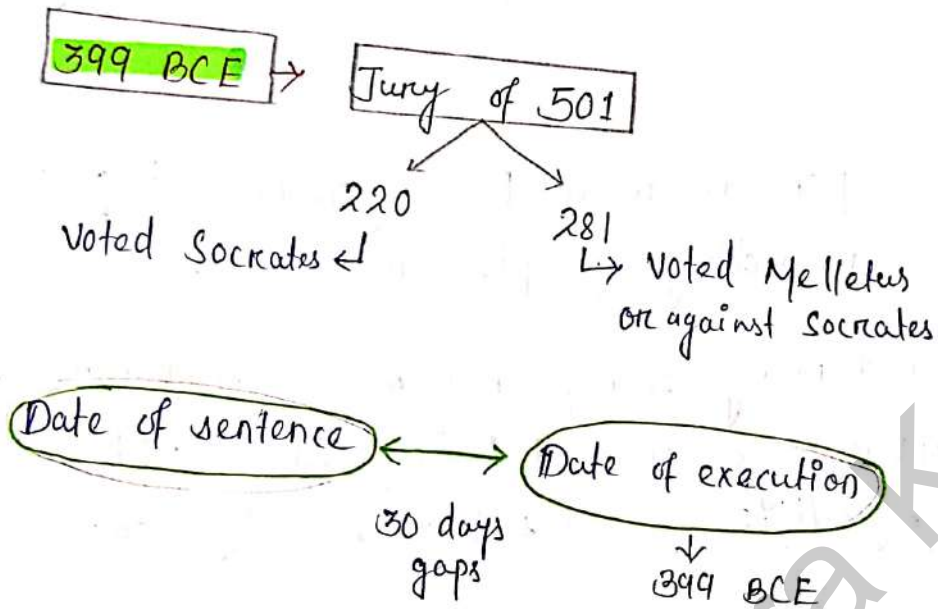 399 BCE
Jury of 501
220
Voted Socrates
281
Voted Melletus
or against Socrates
Date of sentence
Date of execution
30 days
gaps
399 BCE